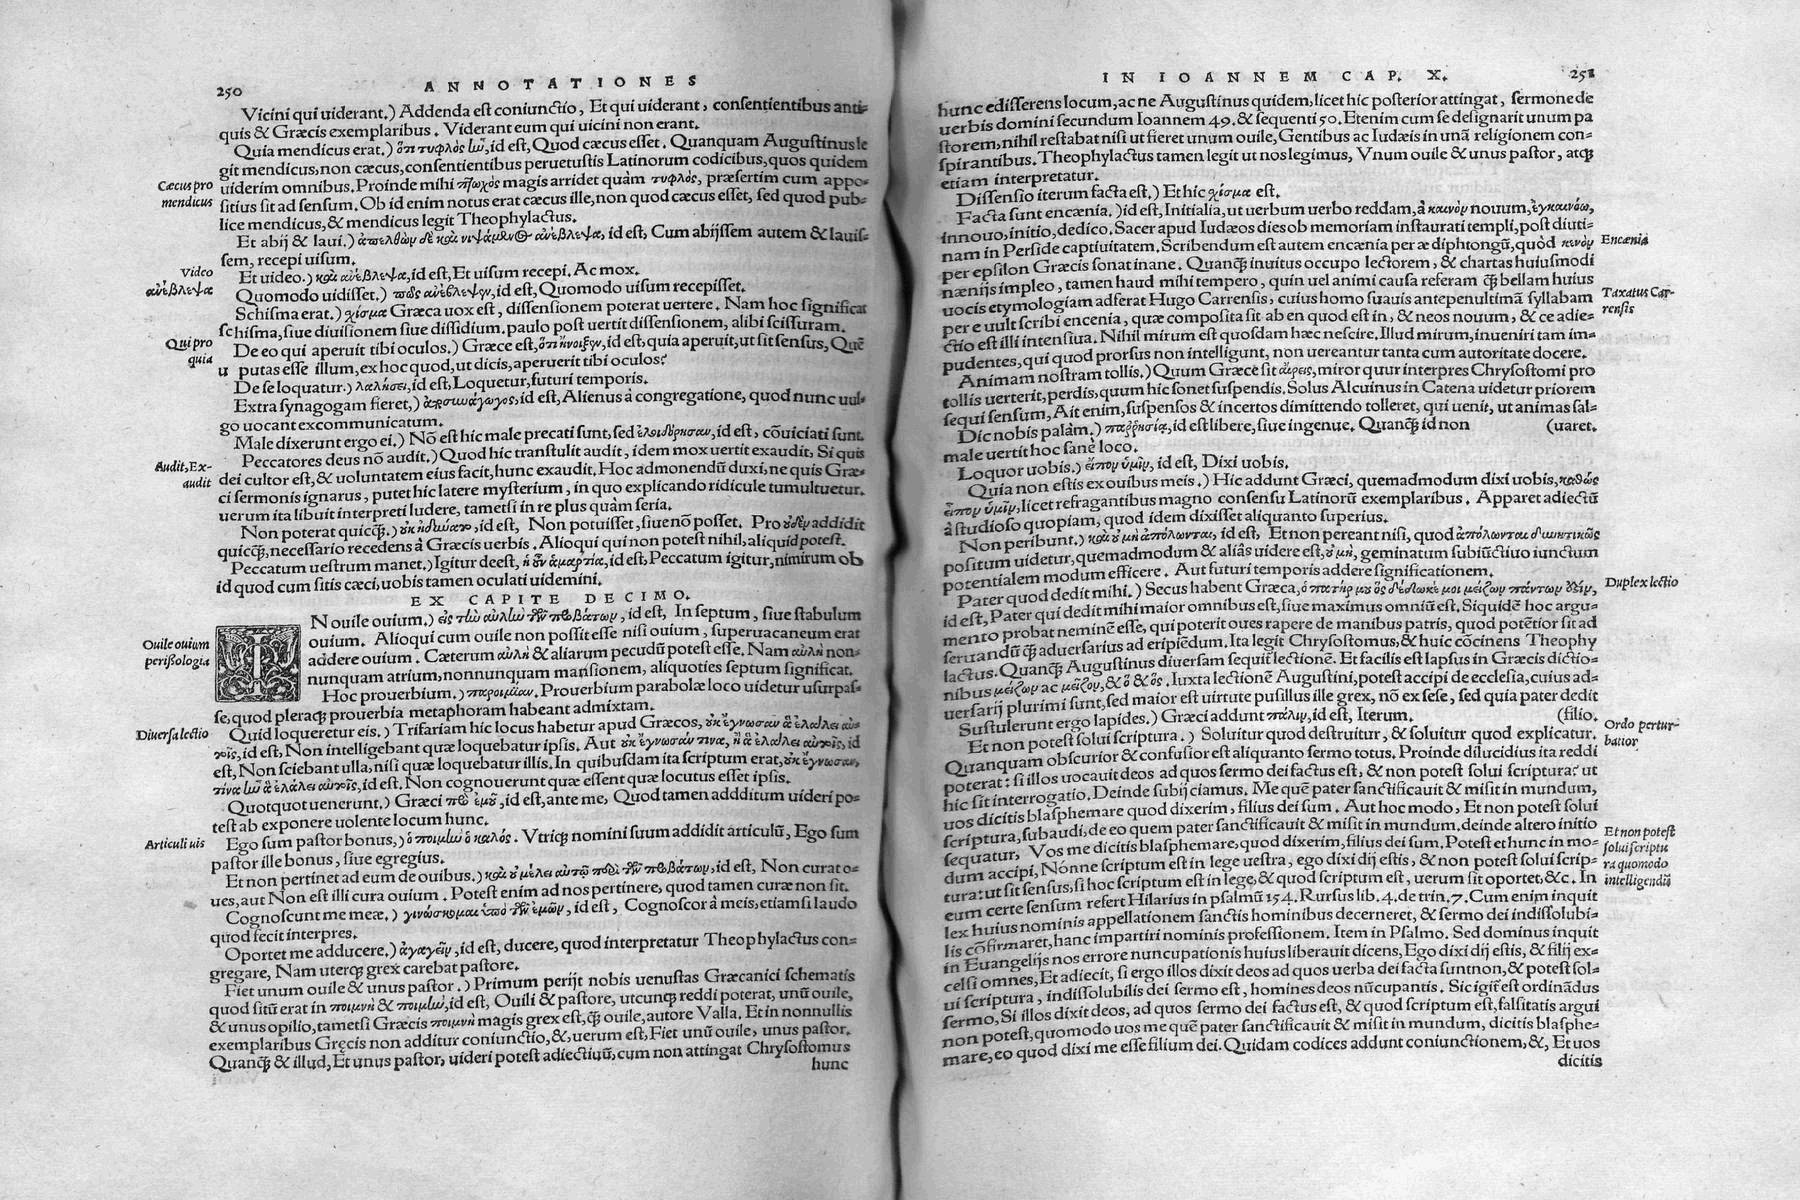 250
ANNOTATIONES
Vicini qui uiderant.) Addenda est coniunctio, Et qui uiderant, consentientibus anti-
quis & Græcis exemplaribus. Viderant eum qui uicini non erant.
Quia mendicus erat.) ὅτι τυφλὸς ἦν, id est, Quod cæcus esset. Quanquam Augustinus le
git mendicus, non cæcus, consentientibus peruetustis Latinorum codicibus, quos quidem
Cæcus pro
mendicus
uiderim omnibus. Proinde mihi πτωχὸς magis arridet quàm τυφλὸς, præsertim cum appo-
situs sit ad sensum. Ob id enim notus erat cæcus ille, non quod cæcus esset, sed quod pub-
lice mendicus, & mendicus legit Theophylactus.
Et abij & laui.) ἀπελθὼν δὲ καὶ νιψάμενος ἀνέβλεψα, id est, Cum abijssem autem & lauis-
sem, recepi uisum.
Video
ἀνέβλεψα
Et uideo.) καὶ ἀνέβλεψα, id est, Et uisum recepi. Ac mox.
Quomodo uidisset.) πῶς ἀνέβλεψεν, id est, Quomodo uisum recepisset.
Schisma erat.) χίσμα Græca uox est, dissensionem poterat uertere. Nam hoc significat
schisma, siue diuisionem siue dissidium. paulo post uertit dissensionem, alibi scissuram.
Qui pro
quia
De eo qui aperuit tibi oculos.) Græce est, ὅτι ἤνοιξεν, id est, quia aperuit, ut sit sensus, Quē
u putas esse illum, ex hoc quod, ut dicis, aperuerit tibi oculos?
De se loquatur.) λαλήσει, id est, Loquetur, futuri temporis.
Extra synagogam fieret,) ἀποσυνάγωγος, id est, Alienus à congregatione, quod nunc uul-
go uocant excommunicatum.
Male dixerunt ergo ei.) Nō est hic male precati sunt, sed ἐλοιδόρησαν, id est, cōuiciati sunt.
Audit, Ex-
audit
Peccatores deus nō audit.) Quod hic transtulit audit, idem mox uertit exaudit, Si quis
dei cultor est, & uoluntatem eius facit, hunc exaudit. Hoc admonendū duxi, ne quis Græ-
ci sermonis ignarus, putet hic latere mysterium, in quo explicando ridicule tumultuetur.
uerum ita libuit interpreti ludere, tametsi in re plus quàm seria.
Non poterat quicꝗ.) οὐκ ἠδύνατο, id est, Non potuisset, siue nō posset. Pro οὐδὲν addidit
quicꝗ, necessario recedens à Græcis uerbis. Alioqui qui non potest nihil, aliquid potest.
Peccatum uestrum manet.) Igitur deest, ἡ οὖν ἁμαρτία, id est, Peccatum igitur, nimirum ob
id quod cum sitis cæci, uobis tamen oculati uidemini.
EX CAPITE DECIMO.
Ouile ouium
perißologia
IN ouile ouium.) εἰς τὴν αὐλὴν τῶν προβάτων, id est, In septum, siue stabulum
ouium. Alioqui cum ouile non possit esse nisi ouium, superuacaneum erat
addere ouium. Cæterum αὐλὴ & aliarum pecudū potest esse. Nam αὐλὴ non-
nunquam atrium, nonnunquam mansionem, aliquoties septum significat.
Hoc prouerbium.) παροιμίαν. Prouerbium parabolæ loco uidetur usurpas-
se, quod pleraqꝫ prouerbia metaphoram habeant admixtam.
Diuersa lectio
Quid loqueretur eis.) Trifariam hic locus habetur apud Græcos, οὐκ ἔγνωσαν ἃ ἐλάλει αὐ-
τοῖς, id est, Non intelligebant quæ loquebatur ipsis. Aut οὐκ ἔγνωσάν τινα, ἢ ἃ ἐλάλει αὐτοῖς, id
est, Non sciebant ulla, nisi quæ loquebatur illis. In quibusdam ita scriptum erat, οὐκ ἔγνωσαν,
τίνα ἦν ἃ ἐλάλει αὐτοῖς, id est. Non cognouerunt quæ essent quæ locutus esset ipsis.
Quotquot uenerunt.) Græci πρὸ ἐμοῦ, id est, ante me, Quod tamen addditum uideri po-
test ab exponere uolente locum hunc.
Articuli uis
Ego sum pastor bonus,) ὁ ποιμὴν ὁ καλός. Vtriqꝫ nomini suum addidit articulū, Ego sum
pastor ille bonus, siue egregius.
Et non pertinet ad eum de ouibus.) καὶ οὐ μέλει αὐτῷ περὶ τῶν προβάτων, id est, Non curat o-
ues, aut Non est illi cura ouium. Potest enim ad nos pertinere, quod tamen curæ non sit.
Cognoscunt me meæ.) γινώσκομαι ὑπὸ τῶν ἐμῶν, id est, Cognoscor à meis, etiamsi laudo
quod fecit interpres.
Oportet me adducere.) ἀγαγεῖν, id est, ducere, quod interpretatur Theophylactus con-
gregare, Nam uterqꝫ grex carebat pastore.
Fiet unum ouile & unus pastor.) Primum perijt nobis uenustas Græcanici schematis
quod sitū erat in ποιμνὴ & ποιμὴν, id est, Ouili & pastore, utcunqꝫ reddi poterat, unū ouile,
& unus opilio, tametsi Græcis ποιμνὴ magis grex est, ꝗ ouile, autore Valla. Et in nonnullis
exemplaribus Gręcis non additur coniunctio, &, uerum est, Fiet unū ouile, unus pastor.
Quanꝗ & illud, Et unus pastor, uideri potest adiectiuū, cum non attingat Chrysostomus
hunc
IN IOANNEM CAP. X.
251
hunc edisserens locum, ac ne Augustinus quidem, licet hic posterior attingat, sermone de
uerbis domini secundum Ioannem 49. & sequenti 50. Etenim cum se designarit unum pa
storem, nihil restabat nisi ut fieret unum ouile, Gentibus ac Iudæis in unā religionem con-
spirantibus. Theophylactus tamen legit ut nos legimus, Vnum ouile & unus pastor, atqꝫ
etiam interpretatur.
Dissensio iterum facta est.) Et hic χίσμα est.
Facta sunt encænia.) id est, Initialia, ut uerbum uerbo reddam, à καινὸν nouum, ἐγκαινόω,
innouo, initio, dedico. Sacer apud Iudæos dies ob memoriam instaurati templi, post diuti-
Encænia
nam in Perside captiuitatem. Scribendum est autem encænia per æ diphtongū, quòd κενὸν
per epsilon Græcis sonat inane. Quanꝗ inuitus occupo lectorem, & chartas huiusmodi
nænijs impleo, tamen haud mihi tempero, quin uel animi causa referam ꝗ bellam huius
Taxatus Car-
rensis
uocis etymologiam adferat Hugo Carrensis, cuius homo suauis antepenultimā syllabam
per e uult scribi encenia, quæ composita sit ab en quod est in, & neos nouum, & ce adie-
ctio est illi intensiua. Nihil mirum est quosdam hæc nescire, Illud mirum, inueniri tam im-
pudentes, qui quod prorsus non intelligunt, non uereantur tanta cum autoritate docere.
Animam nostram tollis.) Quum Græce sit αἴρεις, miror quur interpres Chrysostomi pro
tollis uerterit, perdis, quum hic sonet suspendis. Solus Alcuinus in Catena uidetur priorem
sequi sensum, Ait enim, suspensos & incertos dimittendo tolleret, qui uenit, ut animas sal-
Dic nobis palàm.) παῤῥησίᾳ, id est libere, siue ingenue. Quanꝗ id non (uaret.
male uertit hoc sanè loco.
Loquor uobis.) εἶπον ὑμῖν, id est, Dixi uobis.
Quia non estis ex ouibus meis.) Hic addunt Græci, quemadmodum dixi uobis, καθὼς
εἶπον ὑμῖν, licet refragantibus magno consensu Latinorū exemplaribus. Apparet adiectū
à studioso quopiam, quod idem dixisset aliquanto superius.
Non peribunt.) καὶ οὐ μὴ ἀπόλωνται, id est, Et non pereant nisi, quod ἀπόλωνται δυνητικῶς
positum uidetur, quemadmodum & aliâs uidere est, οὐ μὴ, geminatum subiūctiuo iunctum
potentialem modum efficere. Aut futuri temporis addere significationem.
Duplex lectio
Pater quod dedit mihi.) Secus habent Græca, ὁ πατήρ μου ὃς δέδωκέ μοι μείζων πάντων ἐστίν,
id est, Pater qui dedit mihi maior omnibus est, siue maximus omniū est. Siquidē hoc argu-
mento probat neminē esse, qui poterit oues rapere de manibus patris, quod potētior sit ad
seruandū ꝗ aduersarius ad eripiēdum. Ita legit Chrysostomus, & huic cōcinens Theophy
lactus. Quanꝗ Augustinus diuersam sequit̃ lectionē. Et facilis est lapsus in Græcis dictio-
nibus μείζων ac μεῖζον, & ὃ & ὅς. Iuxta lectionē Augustini, potest accipi de ecclesia, cuius ad-
uersarij plurimi sunt, sed maior est uirtute pusillus ille grex, nō ex sese, sed quia pater dedit
Sustulerunt ergo lapides.) Græci addunt πάλιν, id est, Iterum. (filio.
Ordo pertur-
batior
Et non potest solui scriptura.) Soluitur quod destruitur, & soluitur quod explicatur.
Quanquam obscurior & confusior est aliquanto sermo totus. Proinde dilucidius ita reddi
poterat: si illos uocauit deos ad quos sermo dei factus est, & non potest solui scriptura? ut
hic sit interrogatio. Deinde subijciamus. Me quē pater sanctificauit & misit in mundum,
uos dicitis blasphemare quod dixerim, filius dei sum. Aut hoc modo, Et non potest solui
scriptura, subaudi, de eo quem pater sanctificauit & misit in mundum. deinde altero initio
Et non potest
solui scriptu
ra quomodo
intelligendū
sequatur, Vos me dicitis blasphemare, quod dixerim, filius dei sum. Potest et hunc in mo-
dum accipi, Nónne scriptum est in lege uestra, ego dixi dij estis, & non potest solui scrip-
tura: ut sit sensus, si hoc scriptum est in lege, & quod scriptum est, uerum sit oportet, &c. In
eum certe sensum refert Hilarius in psalmū 154. Rursus lib. 4. de trin. 7. Cum enim inquit
lex huius nominis appellationem sanctis hominibus decerneret, & sermo dei indissolubi-
lis cōfirmaret, hanc impartiri nominis professionem. Item in Psalmo. Sed dominus inquit
in Euangelijs nos errore nuncupationis huius liberauit dicens, Ego dixi dij estis, & filij ex-
celsi omnes, Et adiecit, si ergo illos dixit deos ad quos uerba dei facta suntnon, & potest sol-
ui scriptura, indissolubilis dei sermo est, homines deos nūcupantis. Sic igit̃ est ordinādus
sermo, Si illos dixit deos, ad quos sermo dei factus est, & quod scriptum est, falsitatis argui
non potest, quomodo uos me quē pater sanctificauit & misit in mundum, dicitis blasphe-
mare, eo quod dixi me esse filium dei. Quidam codices addunt coniunctionem, &, Et uos
dicitis